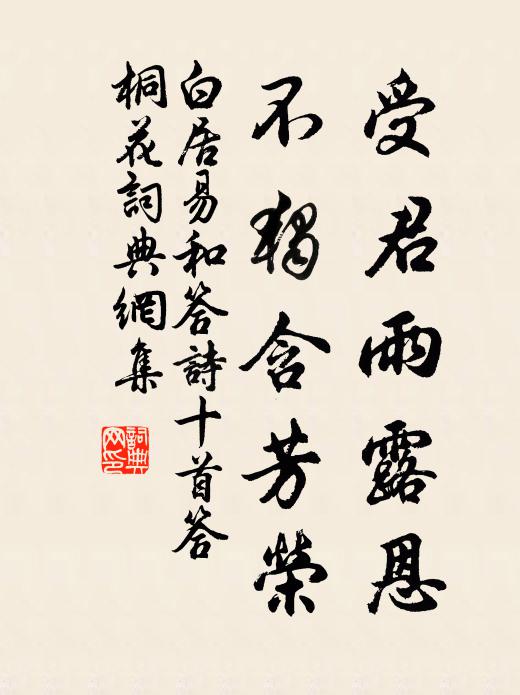 受君雨露恩
不獨含芳榮
白居易和答詩十首答
桐花詞典網集
詞典
网印